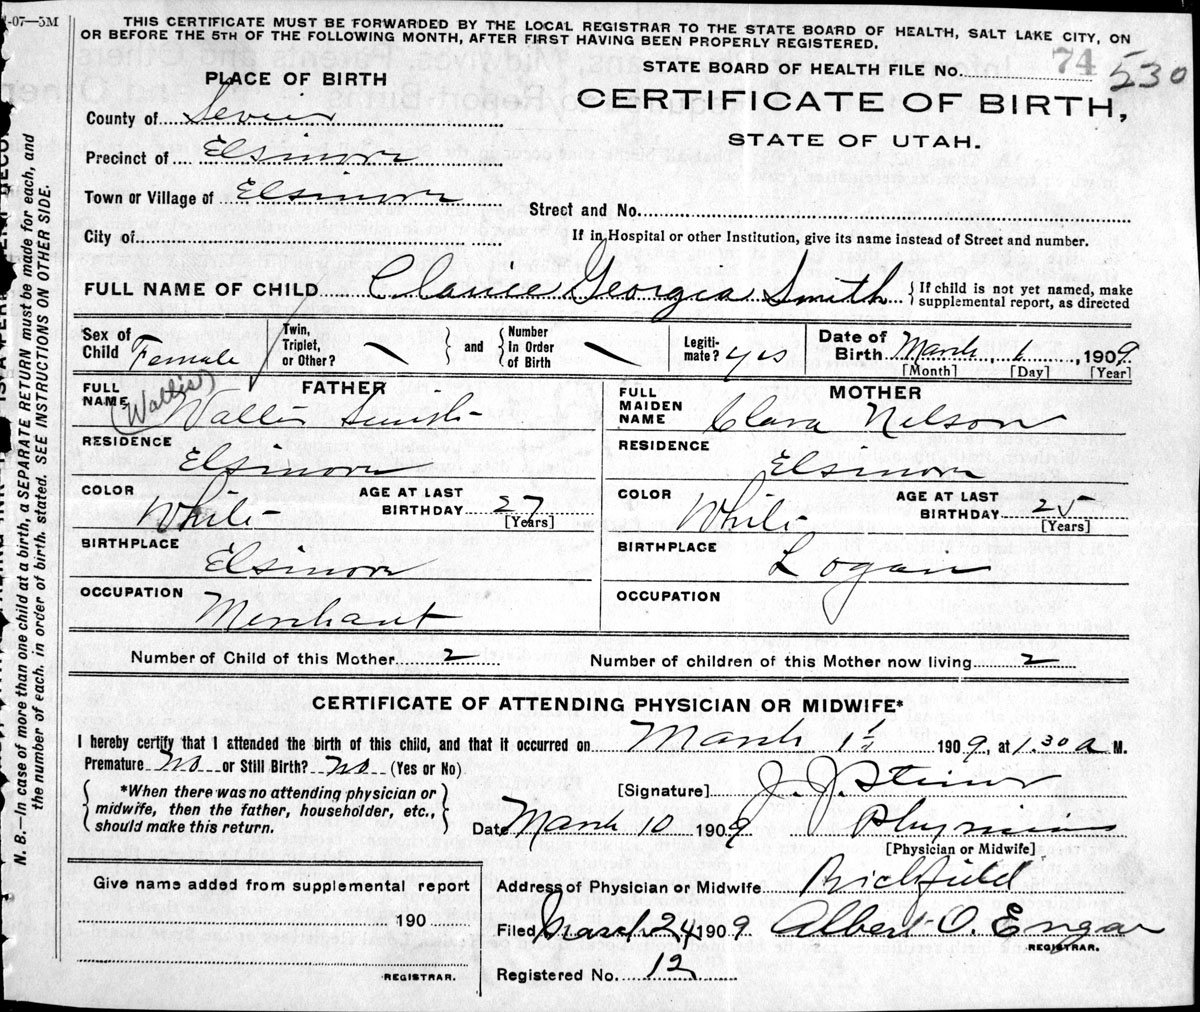 -07—5M
THIS CERTIFICATE MUST BE FORWARDED BY THE LOCAL REGISTRAR TO THE STATE BOARD OF HEALTH, SALT LAKE CITY, ON
OR BEFORE THE 5TH OF THE FOLLOWING MONTH, AFTER FIRST HAVING BEEN PROPERLY REGISTERED.
PLACE OF BIRTH
STATE BOARD OF HEALTH FILE No. 74 530
CERTIFICATE OF BIRTH,
STATE OF UTAH.
County of Sevier
Precinct of Elsinore
Town or Village of Elsinore
Street and No.
City of
If in Hospital or other Institution, give its name instead of Street and number.
FULL NAME OF CHILD Clarice Georgia Smith { If child is not yet named, make
supplemental report, as directed
Sex of Child Female
Twin, Triplet, or Other? \
} and { Number In Order of Birth \
Legiti-mate? yes
Date of Birth March 1, 1909
[Month] [Day] [Year]
FATHER
FULL NAME (Wallis) Wallis Smith
MOTHER
FULL MAIDEN NAME Clara Nelson
RESIDENCE Elsinore
RESIDENCE Elsinore
COLOR White AGE AT LAST BIRTHDAY 27 [Years]
COLOR White AGE AT LAST BIRTHDAY 25 [Years]
BIRTHPLACE Elsinore
BIRTHPLACE Logan
OCCUPATION Merchant
OCCUPATION
Number of Child of this Mother 2 Number of children of this Mother now living 2
CERTIFICATE OF ATTENDING PHYSICIAN OR MIDWIFE*
I hereby certify that I attended the birth of this child, and that it occurred on March 1st 1909, at 1.30 a M.
Premature no or Still Birth? no (Yes or No)
{ *When there was no attending physician or midwife, then the father, householder, etc., should make this return. }
[Signature] J. J. Steiner
Date March 10 1909 Physician
[Physician or Midwife]
Give name added from supplemental report
190
REGISTRAR.
Address of Physician or Midwife Richfield
Filed March 24 1909 Albert O. Engar
REGISTRAR.
Registered No. 12
N. B.—In case of more than one child at a birth, a SEPARATE RETURN must be made for each, and
the number of each, in order of birth, stated. SEE INSTRUCTIONS ON OTHER SIDE.